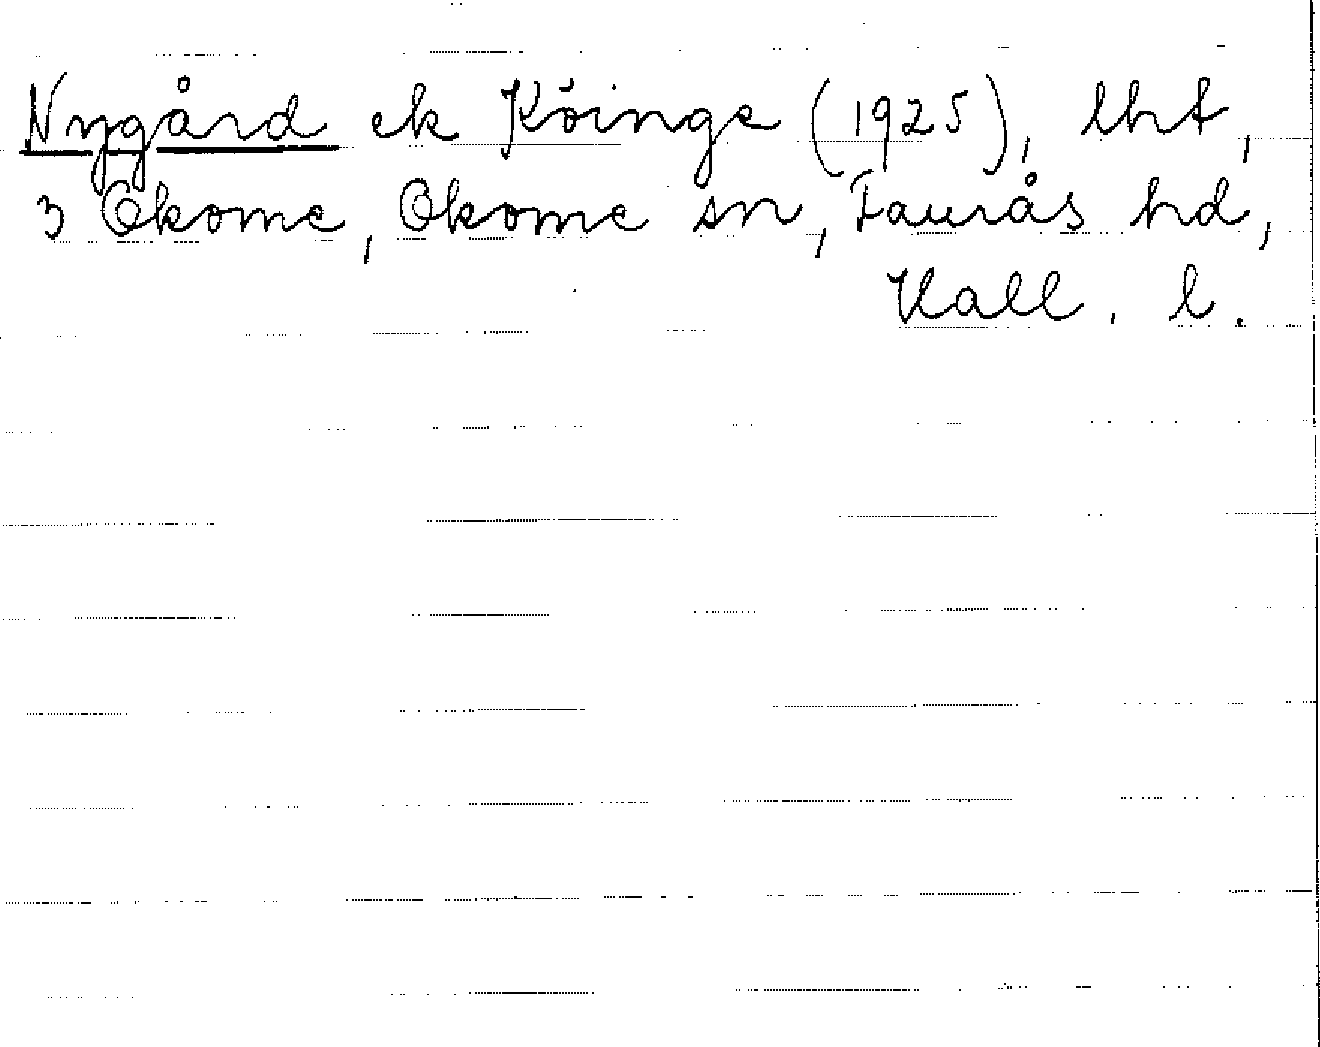 Nygård ek Köinge (1925), lht,
3 Okome, Okome sn, Faurås hd,
Hall. l.